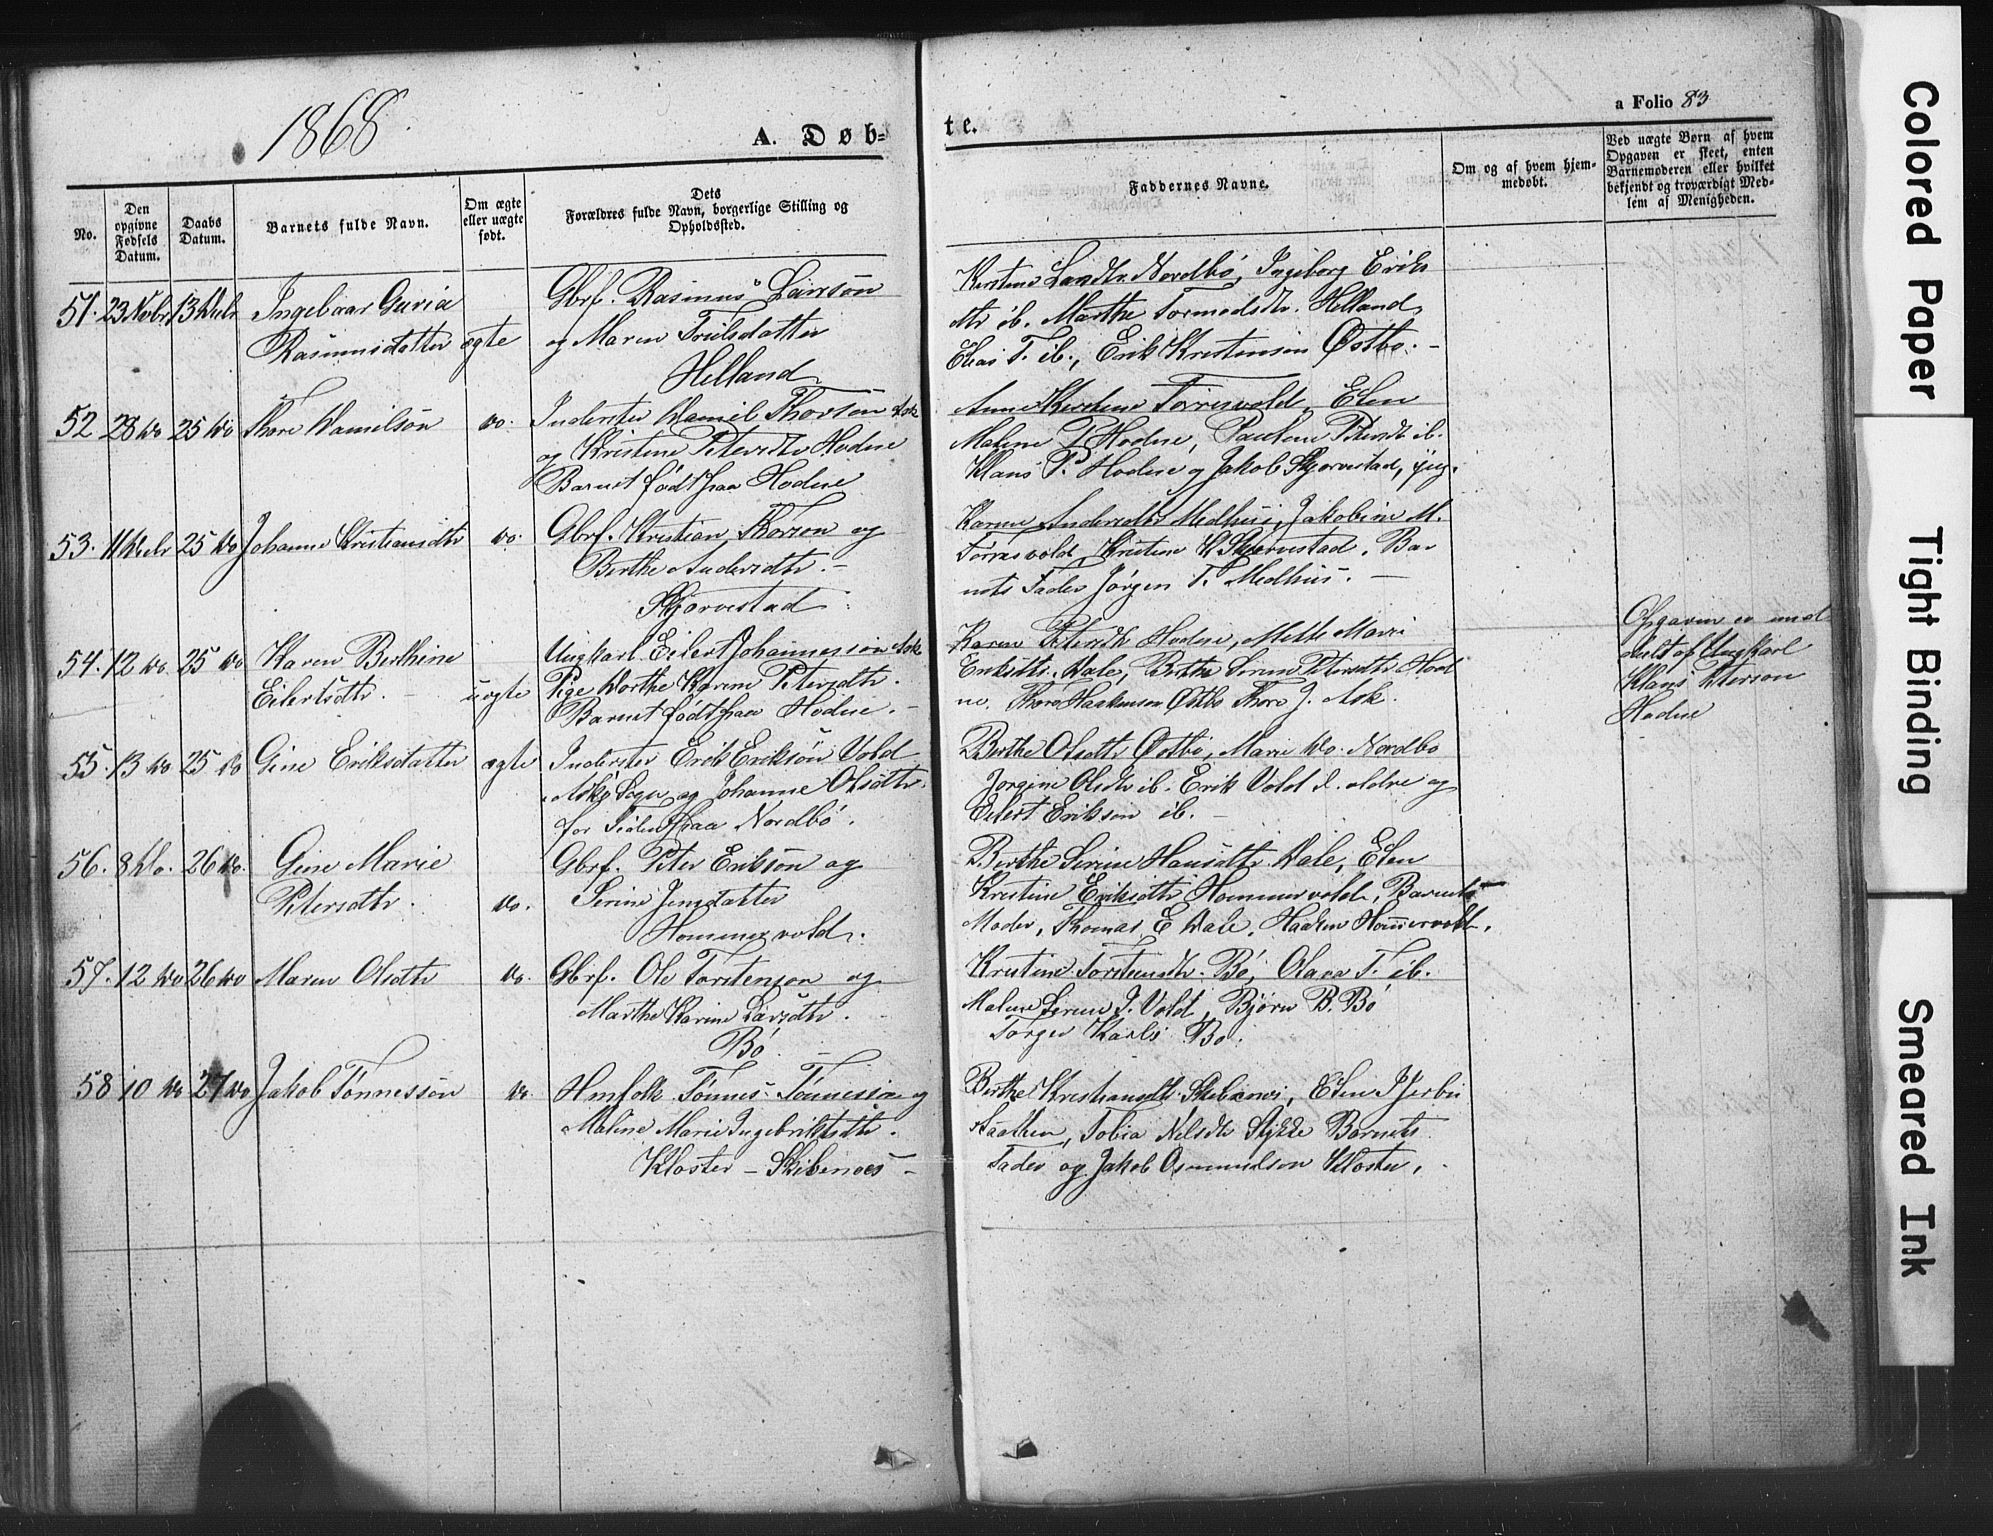 1868
A. Døb-
te.
a Folio 83
No.
Den
opgivne
Fødsels
Datum.
Daabs
Datum.
Barnets fulde Navn.
Om ægte
eller uægte
født.
Dets
Forældres fulde Navn, borgerlige Stilling og
Opholdssted.
Faddernes Navne.
Om og af hvem hjem-
medøbt.
Ved uægte Børn af hvem
Opgaven er skeet, enten
Barnemoderen eller hvilket
bekjendt og troværdigt Med-
lem af Menigheden.
51. 23 Novbr 13 Decbr
Ingeboar Guria
Rasmusdatter
ægte
Gbrf. Rasmus Larsson
og Maren Truelsdatter
Helland
Kirstine Nordbø, Ingeborg Eriks
dtr ib. Marthe Tormodsdtr. Helland
Elias T. ib., Erik Kristensen Østbø. -
52 28 do 25 do
Thore Danielsøn
do.
Inderster Daniel Thorsøn Ask
og Kristine Petersdtr Hodne
Barnet født paa Hodne
Anne Kirstine Torresvold, Elen
Malene P Hodne, Pauline Petersdt ib.
Klaus P. Hodne og Jakob Skjørvestad,
53. 11 Decbr 25 do
Johanne Kristiansdtr
do.
Gbrf. Kristian Thorson og
Berthe Andersdtr. -
Skjørvestad
Karine Andersdtr Medhus, Jakobine M.
Torresvold, Kristine K Skjørvestad. Bar
nets Fader Jørgen T. Medhus. -
54. 12 do 25 do
Karen Berthine
Eilertsdtr. -
uægte
Ungkarl Eilert Johannesson Ask
Pige Dorthe Karine Petersdtr.
Barnet født paa Hodne. -
Karen Petersdtr Hodne, Mette Marie
Eriksdtr. Dale, Berthe Serine Petersdtr Hod
ne. Thore Haakensen Østbø Thore J. Ask.
Opgaven er med
delt af Ungkarl
Klaus Peterson
Hodne
55. 13 do 25 do
Gine Eriksdatter
ægte
Inderster Erik Eriksøn Vold
Askø Sogn og Johanne Olsdtr.
for Tiden paa Nordbø.
Berthe Olsdtr Østbø, Marie do. Nordbø
Jorgine Olsdtr ib. Erik Vold d. ældre og
Eilert Erikson ib. -
56. 8 do. 26 do.
Gine Marie
Petersdtr.
do.
Gbrf. Peter Eriksøn og
Serine Jensdatter
Hommersvold.
Berthe Serine Hansdtr Dale, Elen
Kristine Eriksdtr Hommersvold, Barnets
Moder, Thomas E Dale, Haaken Hommersvold.
57. 12 do 26 do
Maren Olsdtr
do.
Gbrf. Ole Torstenson og
Marthe Karine Larsdtr.
Bø. -
Kristine Torstensdtr. Bø, Olava T. ib.
Malene Serine J. Vold, Bjørn B. Bø
Torger Karls Bø.
58 10 do 27 do
Jakob Tønnessøn
do.
Hmfolk Tønnes Tønnesson og
Maline Marie Ingebriktsdtr.
Kloster - Skibenoes -
Berthe Kristiansdtr. Skibenoes, Elen
Tobia Nelsdtr Barnets
Fader og Jakob Osmundson Kloster.
Colored Paper
Tight Binding
Smeared Ink